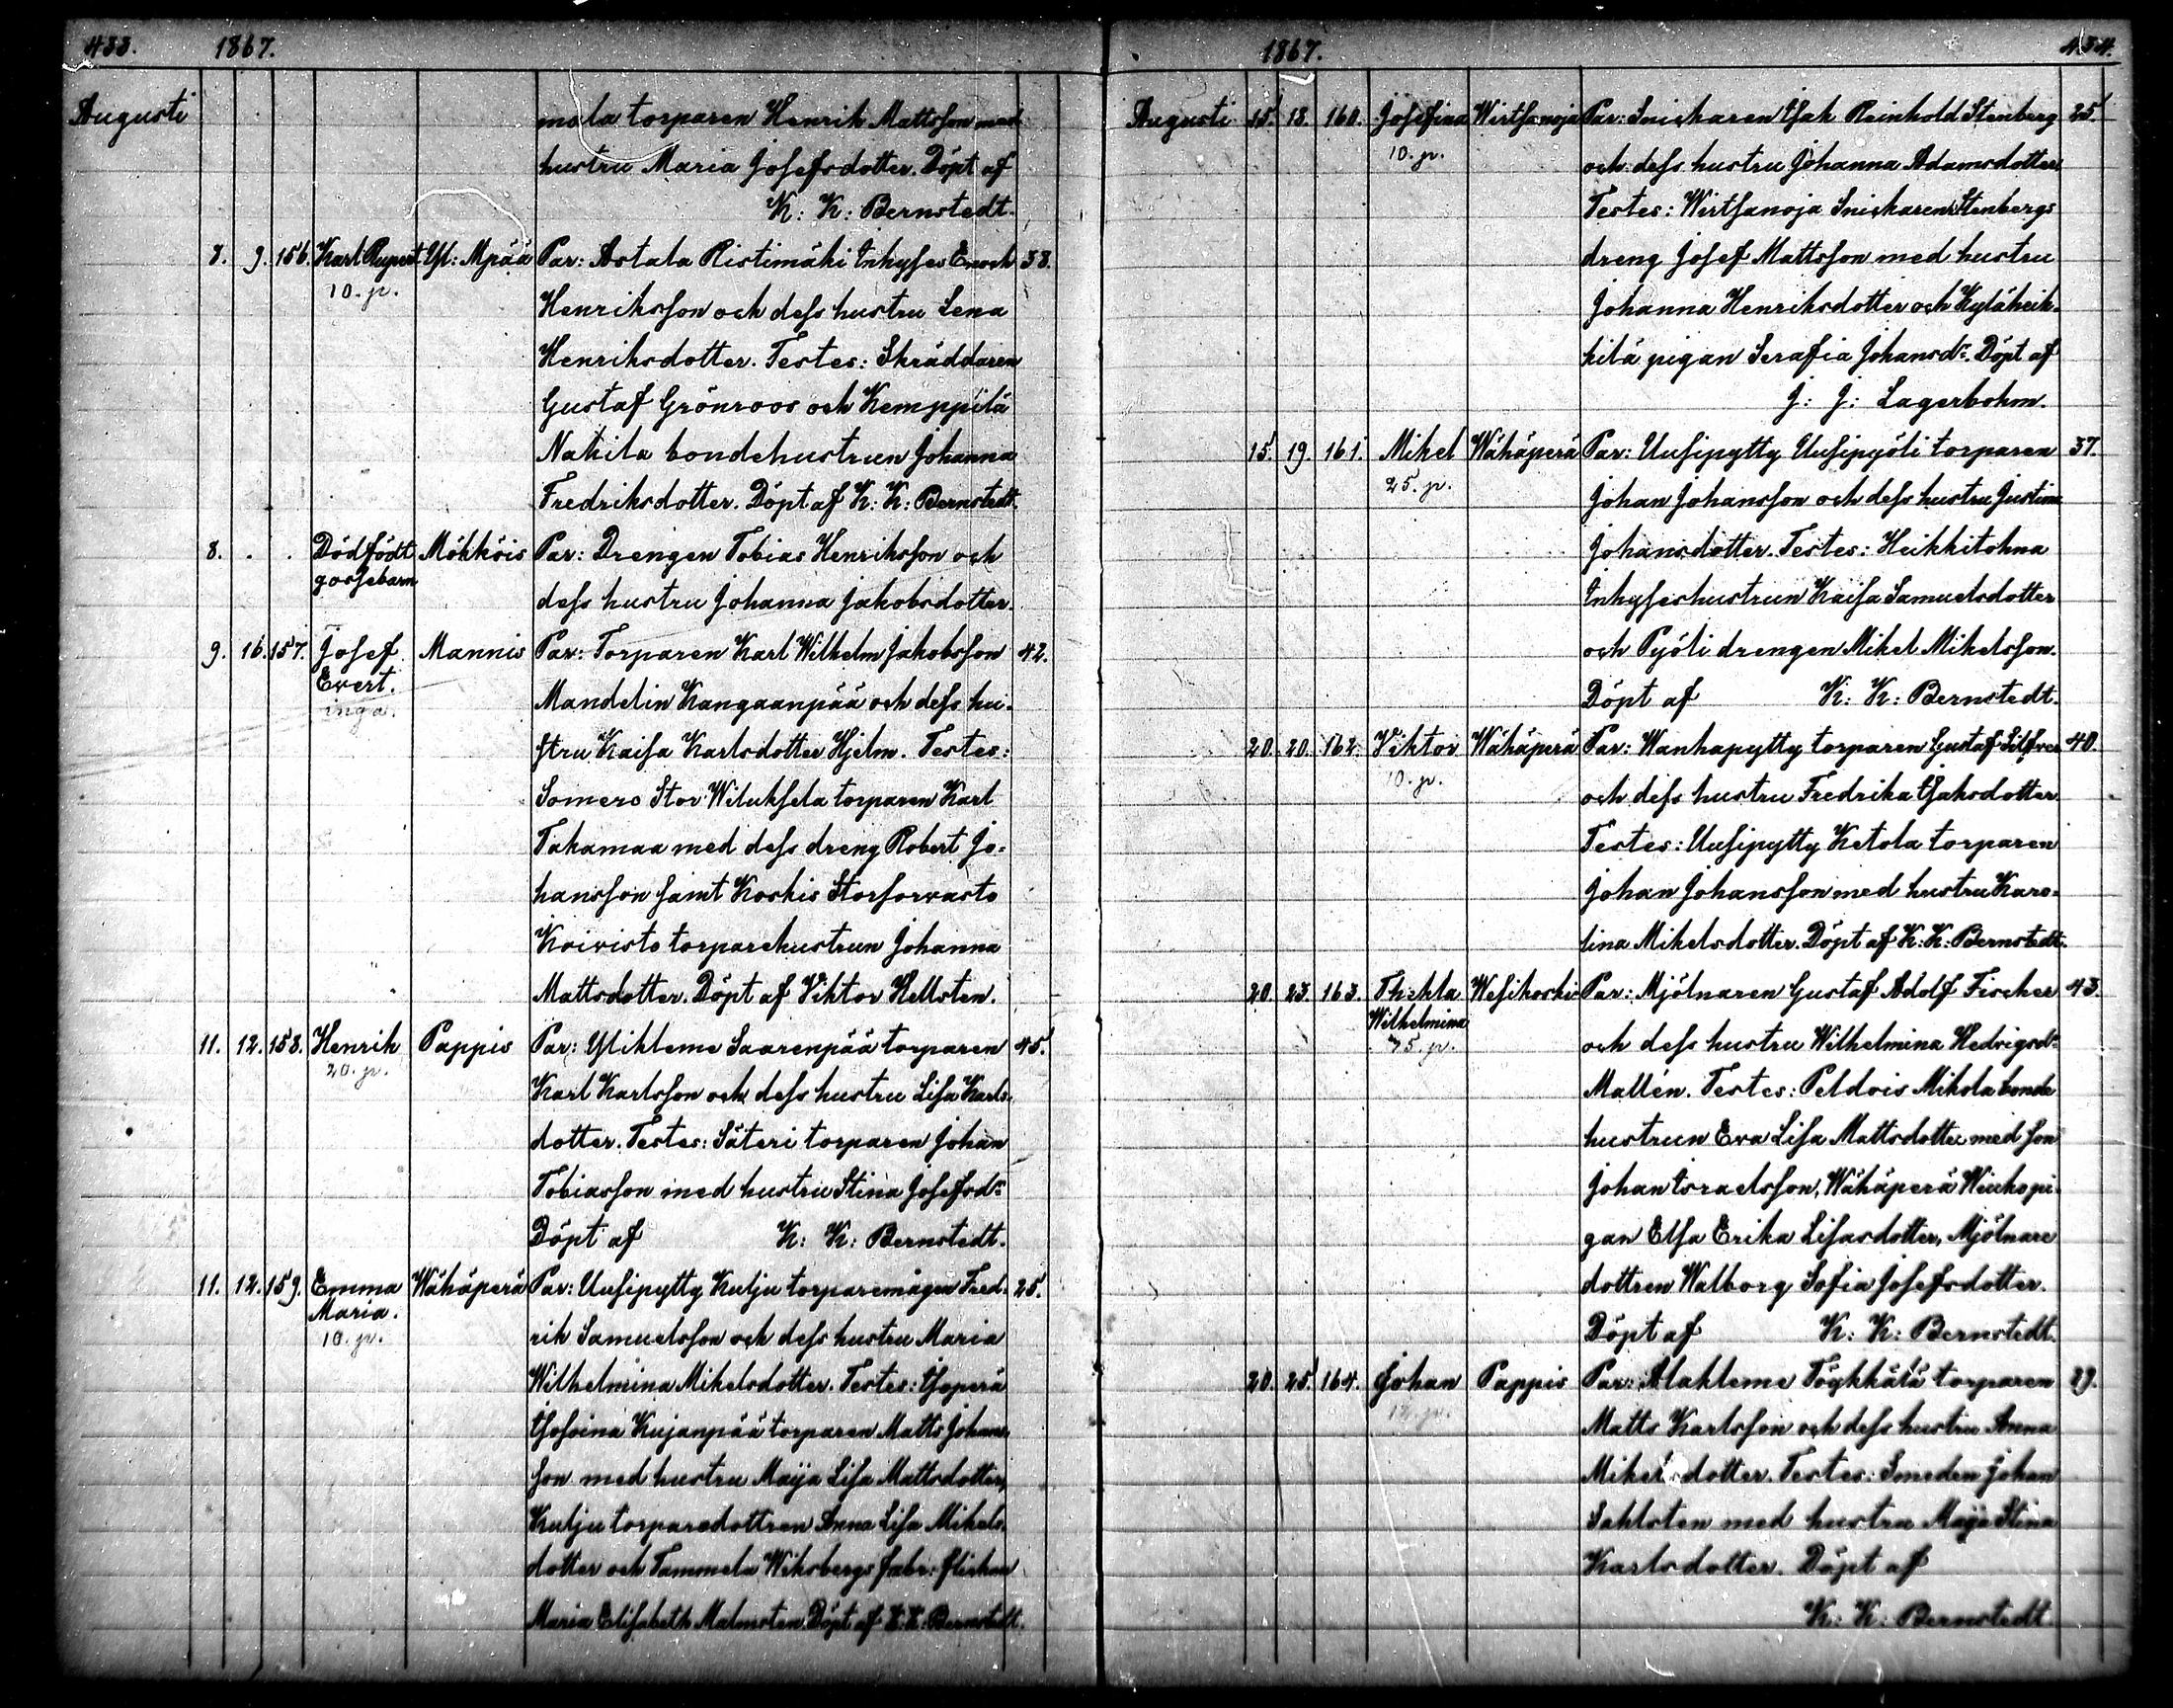 433. 1867.
Augusti mala torparen Henrik Mattsson med
hustru Maria Josefsdotter. Döpt af
K: K: Bernstedt.
8. 9. 156. Karl Rupert Yl: Mpää Par: Astala Ristimäki Inhyses Enoch 38.
10. p. Henriksson och dess hustru Lena
Henriksdotter. Testes: Skräddaren
Gustaf Grönroos och Kemppilä
Nakila bondehustrun Johanna
Fredriksdotter. Döpt af K: K: Bernstedt.
8. . . Dödfödt Mökköis Par: Drengen Tobias Henriksson och
gossebarn dess hustru Johanna Jakobsdotter.
9. 16. 157. Josef Mannis Par: Torparen Karl Wilhelm Jakobsson 42.
Evert. Mandelin Kangaanpää och dess hu-
inga. stru Kaisa Karlsdotter Hjelm. Testes:
Somero Stor Wiluksela torparen Karl
Takamaa med dess dreng Robert Jo-
hansson samt Koskis Storsorvasto
Koivisto torparehustrun Johanna
Mattsdotter. Döpt af Viktor Hellsten.
11. 12. 158. Henrik Pappis Par: Ylikleme Saarenpää torparen 45.
20. p. Karl Karlsson och dess hustru Lisa Karls-
dotter. Testes: Säteri torparen Johan
Tobiasson med hustru Stina Josefsdr
Döpt af K: K: Bernstedt.
11. 12. 159. Emma Wähäperä Par: Uusipytty Kulju torparemågen Fred- 25.
Maria. rik Samuelsson och dess hustru Maria
10. p. Wilhelmina Mikelsdotter. Testes: Isoperä
Isosoina Kujanpää torparen Matts Johans-
son med hustru Maija Lisa Mattsdotter,
Kulju torparedottren Anna Lisa Mikels-
dotter och Tammela Wiksbergs fabr: flickan
Maria Elisabeth Malmsten. Döpt af K: K: Bernstedt.
1867. 434.
Augusti 15. 18. 160. Josefina Wirtsanoja Par: Snickaren Isak Reinhold Stenberg 25.
10. p. och dess hustru Johanna Adamsdotter.
Testes: Wirtsanoja Snickaren Stenbergs
dreng Josef Mattsson med hustru
Johanna Henriksdotter och Kyläheik-
kilä pigan Serafia Johansdr. Döpt af
J: J: Lagerbohm.
15. 19. 161. Mikel Wähäperä Par: Uusipytty Uusipyöli torparen 37.
25. p. Johan Johansson och dess hustru Justina
Johansdotter. Testes: Heikkitohna
Inhyseshustrun Kaisa Samuelsdotter
och Pyöli drengen Mikel Mikelsson.
Döpt af K: K: Bernstedt.
20. 20. 162. Viktor Wähäperä Par: Wanhapytty torparen Gustaf Silfver 40.
10. p. och dess hustru Fredrika Isaksdotter
Testes: Uusipytty Ketola torparen
Johan Johansson med hustru Karo-
lina Mikelsdotter. Döpt af K: K: Bernstedt.
20. 23. 163. Thekla Wesikoski Par: Mjölnaren Gustaf Adolf Fischer 43.
Wilhelmina och dess hustru Wilhelmina Hedvigsdr
75. p. Mallén. Testes: Peldois Mikola bonde
hustrun Eva Lisa Mattsdotter med son
Johan Israelsson, Wähäperä Wiuho pi-
gan Elsa Erika Lisasdotter, Mjölnare
dottren Walborg Sofia Josefsdotter.
Döpt af K: K: Bernstedt.
20. 25. 164. Johan Pappis Par: Alakleme Töykkälä torparen 29.
Matts Karlsson och dess hustru Anna
Mikelsdotter. Testes: Smeden Johan
Sahlsten med hustru Maija Stina
Karlsdotter. Döpt af
K: K: Bernstedt.